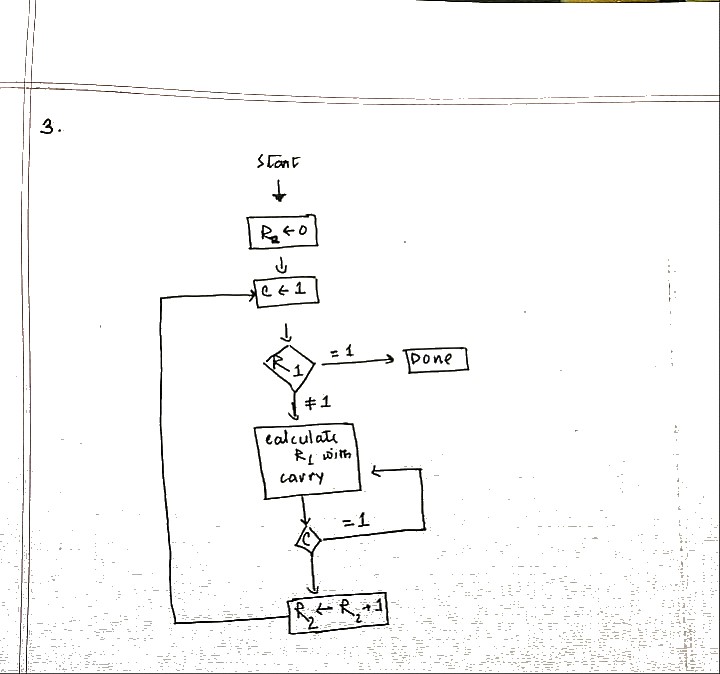 3.
Start
R2 ← 0
C ← 1
R1
= 1
Done
≠ 1
calculate
R1 with
carry
C
= 1
R2 ← R2 + 1